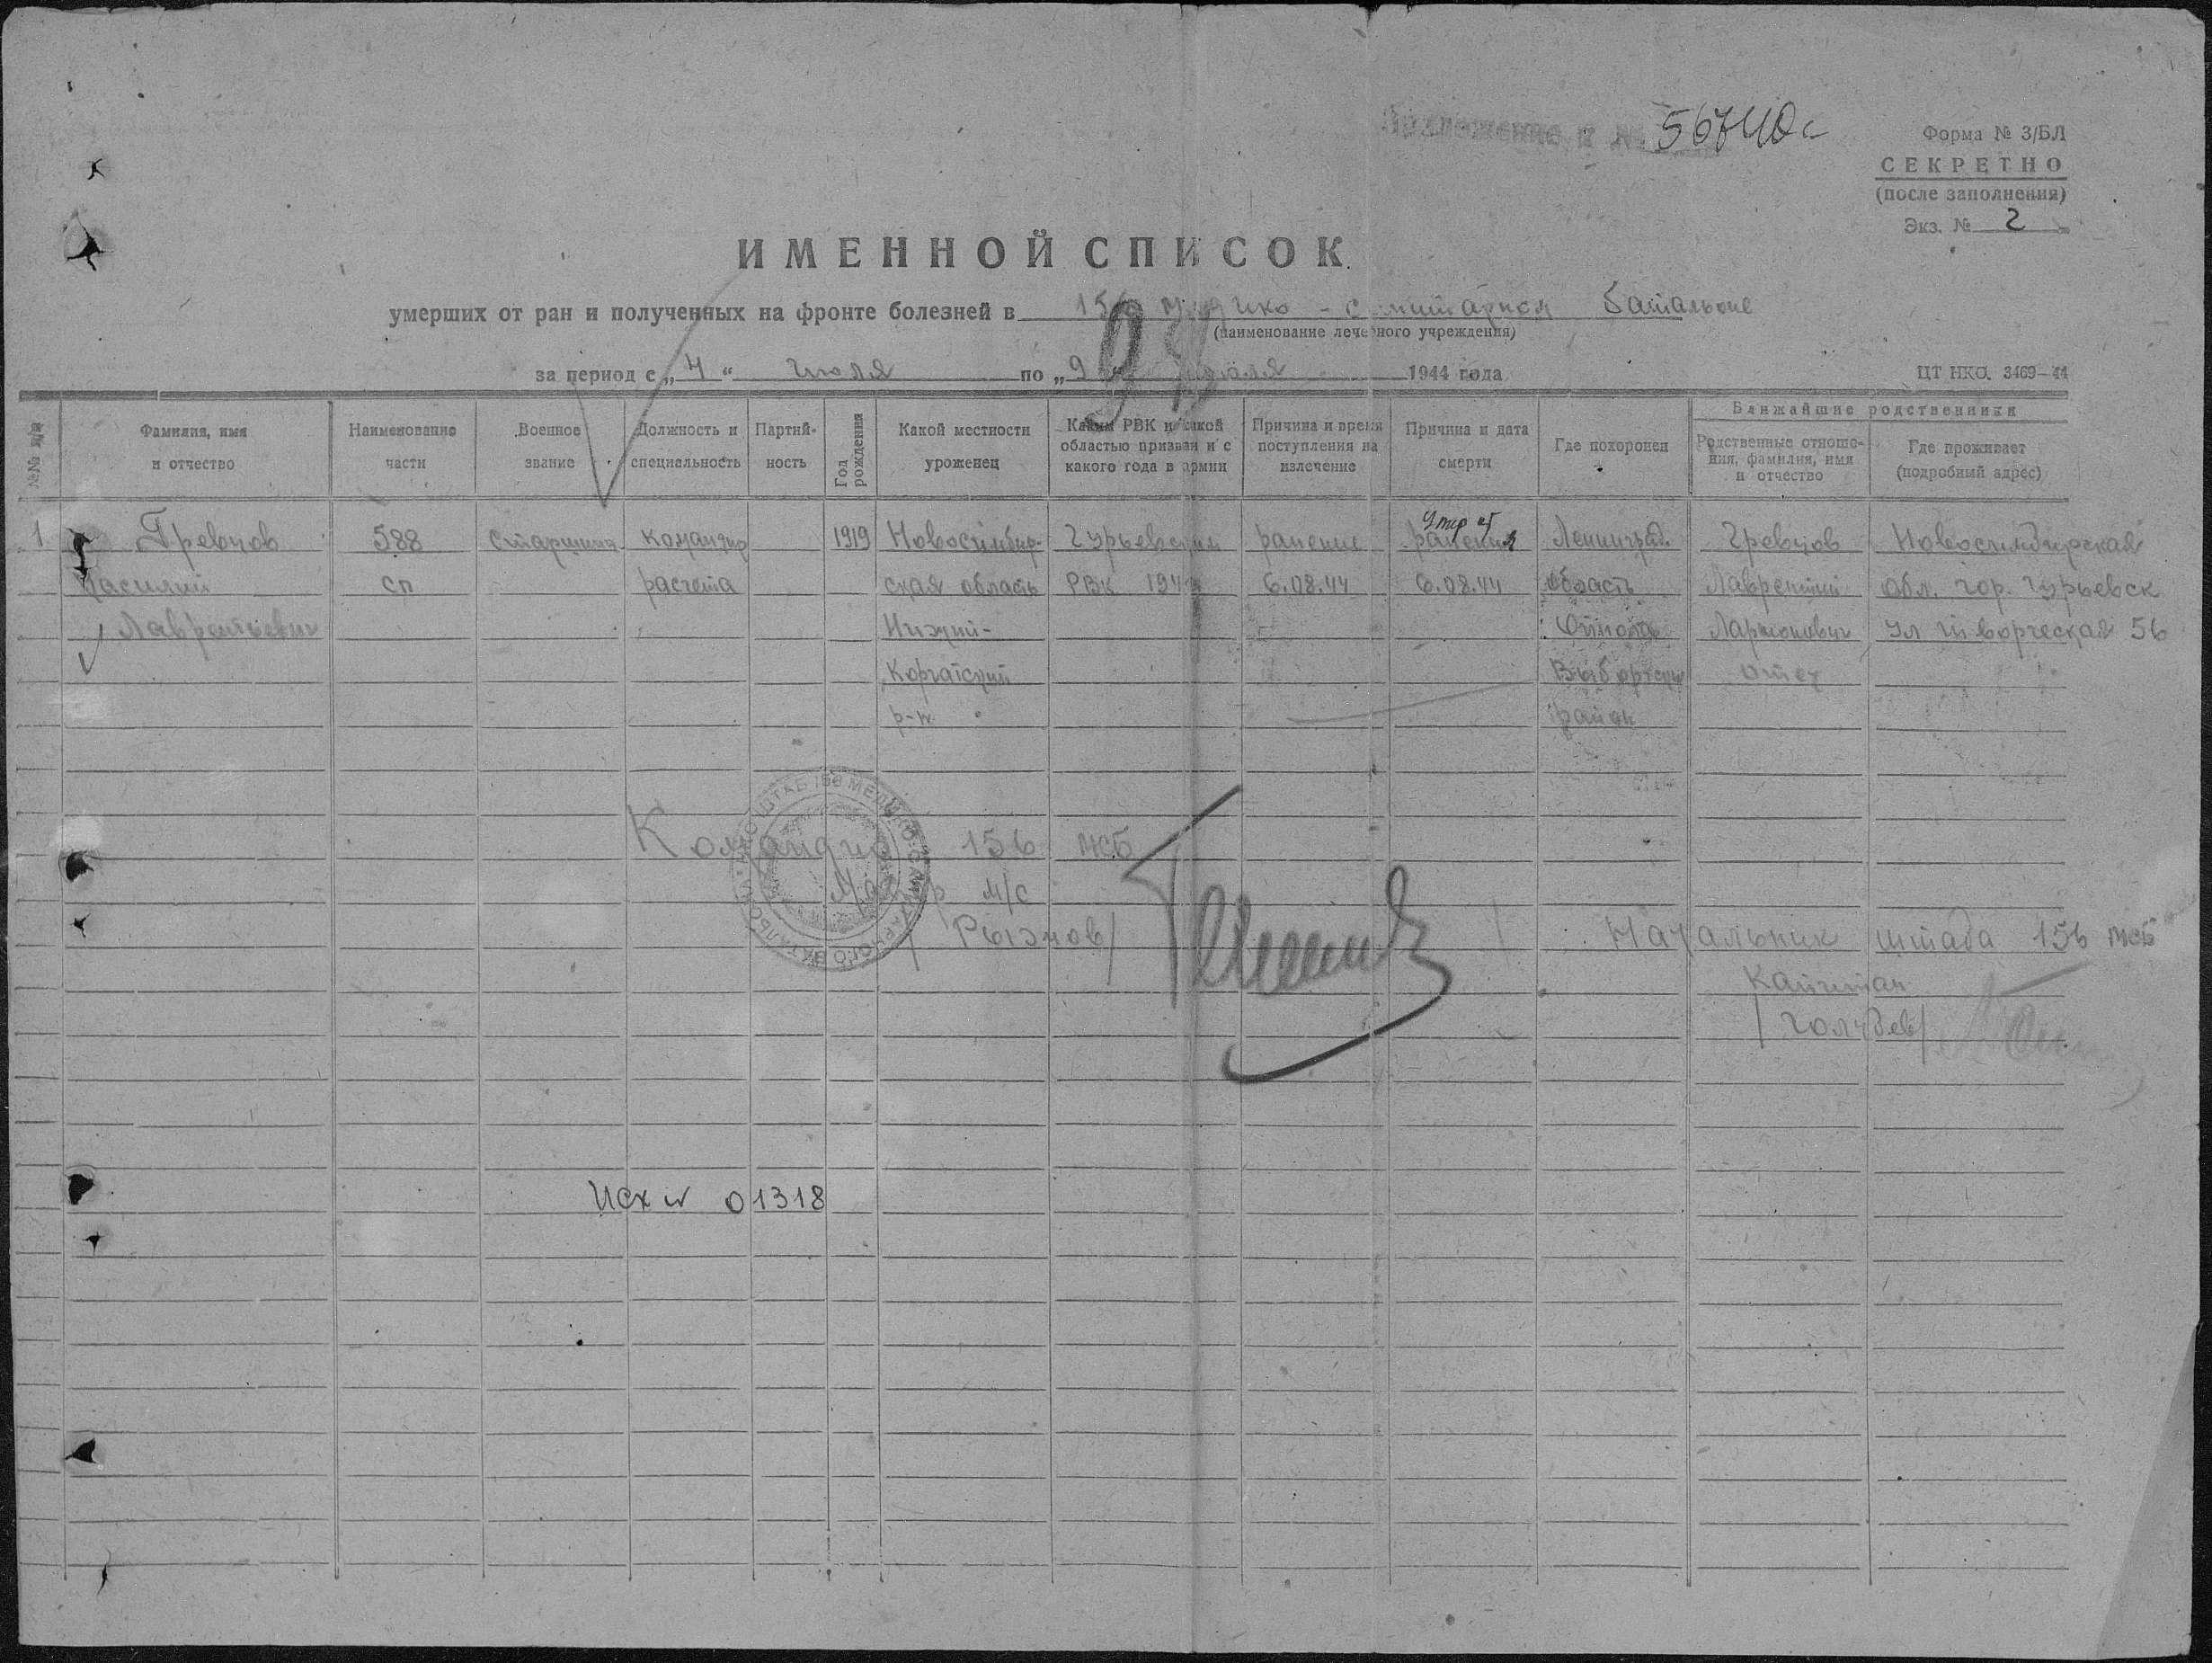 Приложение к № 56740с
Форма № 3/БЛ
СЕКРЕТНО
(после заполнения)
Экз. № 2
ИМЕННОЙ СПИСОК
умерших от ран и полученных на фронте болезней в 156 медико-санитарном батальоне
(наименование лечебного учреждения)
за период с „4“ июля по „9“ 1944 года
ЦТ НКО. 3469-44
№№ п/п
Фамилия, имя и отчество
Наименование части
Военное звание
Должность и специальность
Партийность
Год рождения
Какой местности уроженец
Каким РВК и какой областью призван и с какого года в армии
Причина и время поступления на излечение
Причина и дата смерти
Где похоронен
Ближайшие родственники
Родственные отношения, фамилия, имя и отчество
Где проживает (подробный адрес)
Умер от
1 Гревцов 588 старшина командир 1919 Новосибир- Гурьевским ранение ранения Ленинград. Гревцов Новосибирская
Василий сп расчета ская область РВК 194 6.08.44 6.08.44 область Лаврентий обл. гор. Гурьевск
Лаврентьевич Нижний- Ларионович ул 56
р-н Выборгский отец
район
Командир 156 МСБ
Майор м/с
Начальник штаба 156 МСБ
Капитан
/Голубев/
Исх № 01318